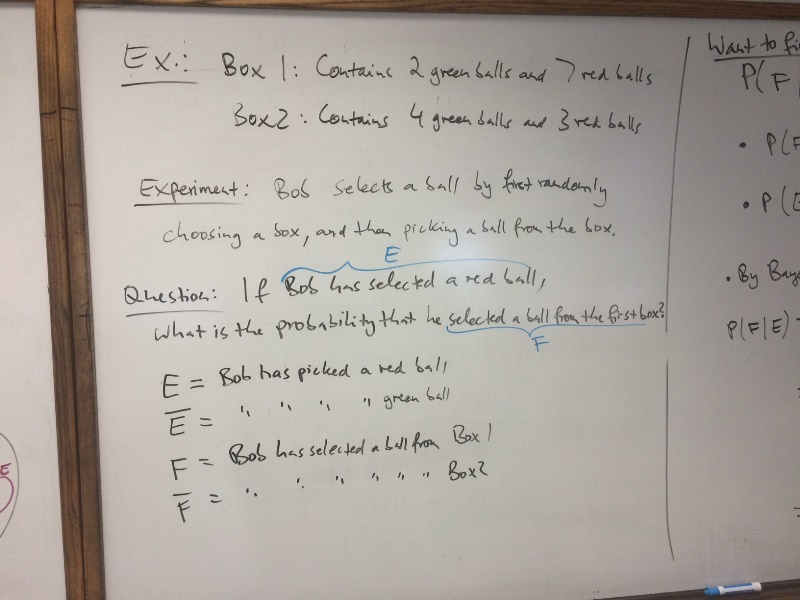 Ex.: Box 1: Contains 2 green balls and 7 red balls
Box 2: Contains 4 green balls and 3 red balls
Experiment: Bob selects a ball by first randomly
choosing a box, and then picking a ball from the box.
E
Question: If Bob has selected a red ball,
what is the probability that he selected a ball from the first box?
F
E = Bob has picked a red ball
E̅ = " " " " green ball
F = Bob has selected a ball from Box 1
F̅ = " " " " " " Box 2
Want to
P(F
• P(F
• P(E
• By
P(F|E) =
E